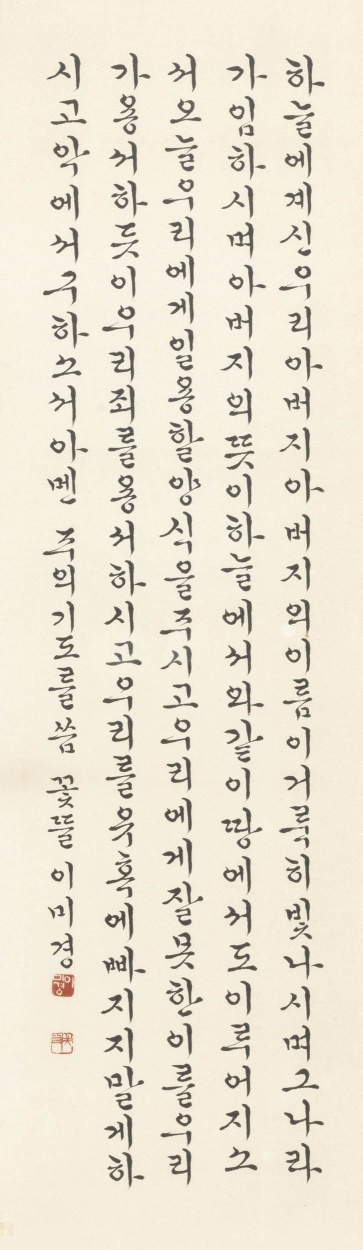 하늘에계신우리아버지아버지의이름이거룩히빛나시며그나라
가임하시며아버지의뜻이하늘에서와같이땅에서도이루어지소
서오늘우리에게일용할양식을주시고우리에게잘못한이를우리
가용서하듯이우리죄를용서하시고우리를유혹에빠지지말게하
시고악에서구하소서아멘 주의기도를씀 꽃뜰 이미경